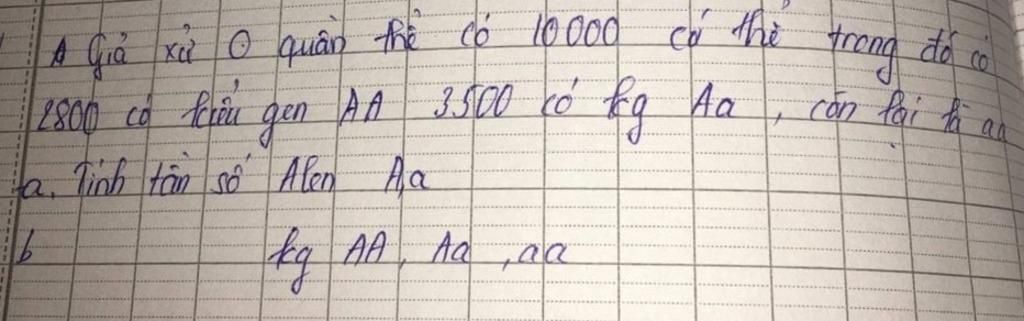 Giả xử 0 quần thể có 10000 cá thể trong đó có
2800 có kiểu gen AA 3500 có kg Aa , còn lại là aa
a. Tính tần số Alen A,a
b kg AA, Aa ,aa